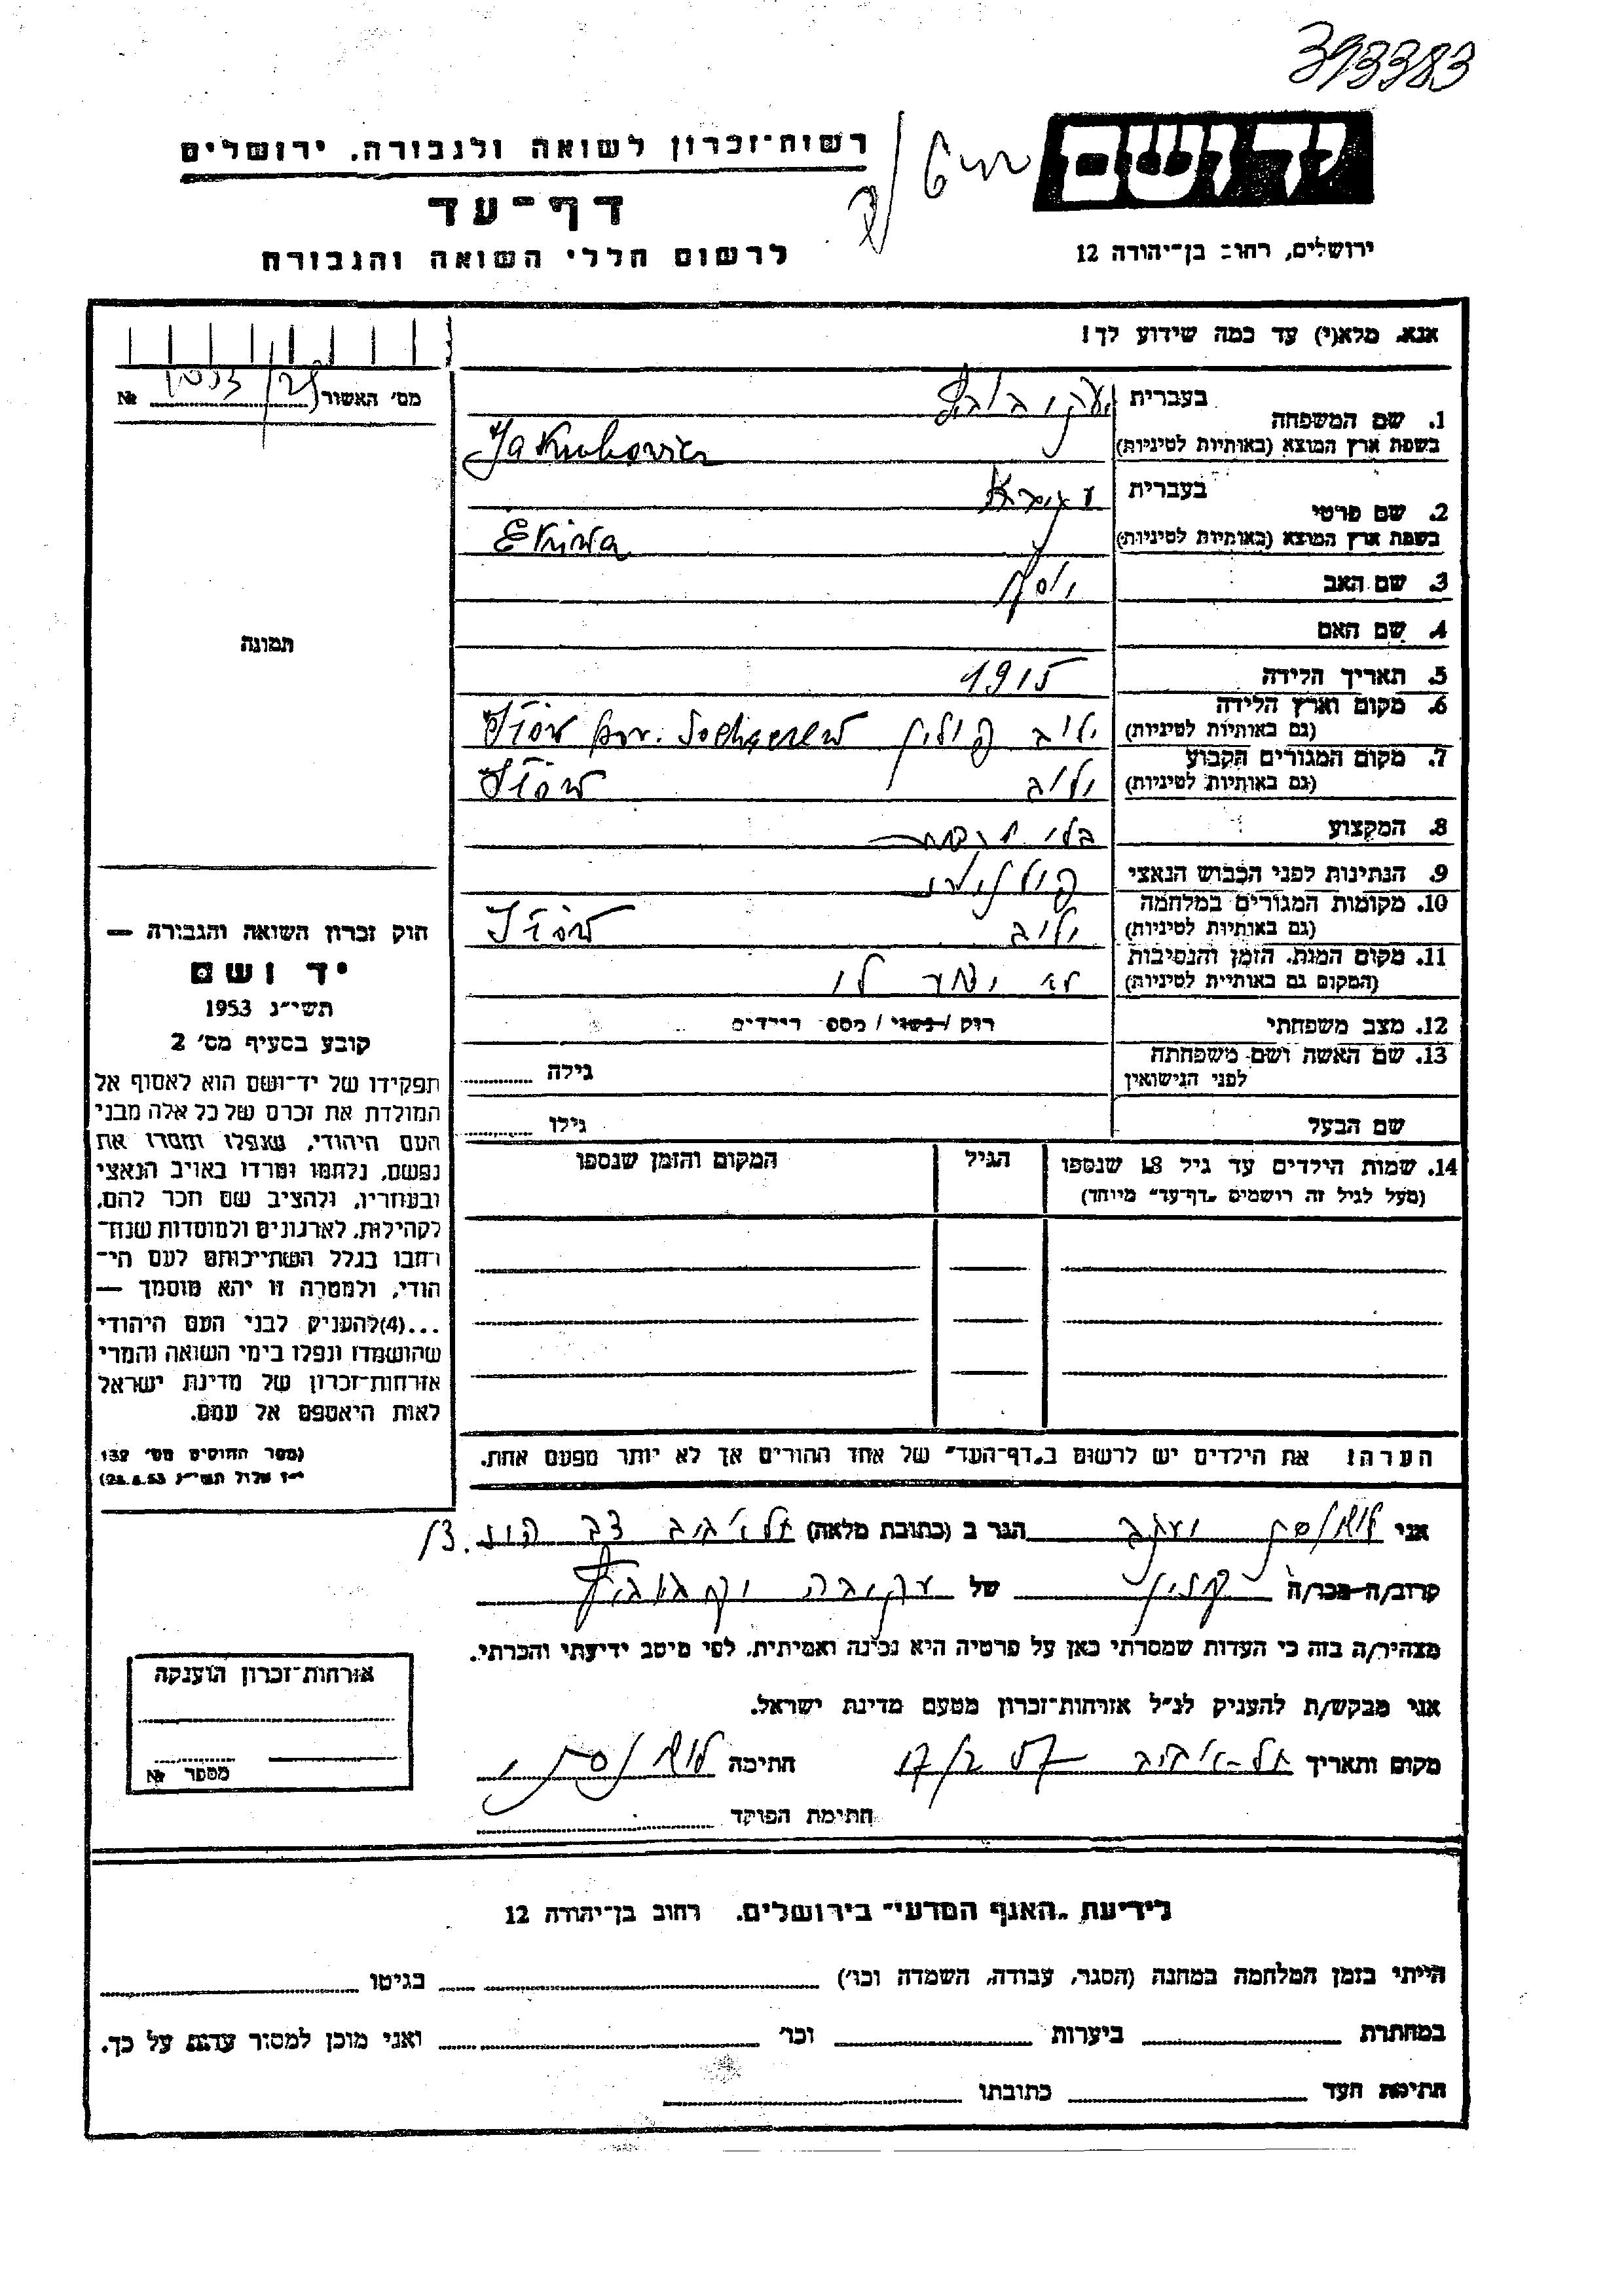 393383
רשות־זכרון לשואה ולגבורה, ירושלים
דף־עד
לרשום חללי השואה והגבורה
יד ושם
ירושלים, רחוב בן־יהודה 12
אנא, מלא(י) עד כמה שידוע לך!
מס׳ האשור № 
1. שם המשפחה
בעברית יעקובוביץ
בשפת ארץ המוצא (באותיות לטיניות) Jakubowicz
2. שם פרטי
בעברית עקיבא
בשפת ארץ המוצא (באותיות לטיניות) Ekiwa
3. שם האב יוסף
4. שם האם
5. תאריך הלידה 1915
6. מקום וארץ הלידה
(גם באותיות לטיניות) פולין Iłów pow. Sochaczew
7. מקום המגורים הקבוע
(גם באותיות לטיניות) Iłów
8. המקצוע
9. הנתינות לפני הכבוש הנאצי
10. מקומות המגורים במלחמה
(גם באותיות לטיניות) Iłów
11. מקום המות, הזמן והנסיבות
(המקום גם באותיות לטיניות) לא ידוע לי
12. מצב משפחתי רוק / נשוי / מספר הילדים
13. שם האשה ושם משפחתה
לפני הנישואין גילה
שם הבעל גילו
14. שמות הילדים עד גיל 18 שנספו הגיל המקום והזמן שנספו
(מעל לגיל זה רושמים „דף־עד״ מיוחד)
הערה! את הילדים יש לרשום ב„דף־העד״ של אחד ההורים אך לא יותר מפעם אחת.
תמונה
חוק זכרון השואה והגבורה —
יד ושם
תשי״ג 1953
קובע בסעיף מס׳ 2
תפקידו של יד־ושם הוא לאסוף אל
המולדת את זכרם של כל אלה מבני
העם היהודי, שנפלו ומסרו את
נפשם, נלחמו ומרדו באויב הנאצי
ובעוזריו, ולהציב שם וזכר להם,
לקהילות, לארגונים ולמוסדות שנח־
רבו בגלל השתייכותם לעם הי־
הודי, ולמטרה זו יהא מוסמך —
...(4)להעניק לבני העם היהודי
שהושמדו ונפלו בימי השואה והמרי
אזרחות־זכרון של מדינת ישראל
לאות היאספם אל עמם.
(ספר החוקים מס׳ 132
י״ז אלול תשי״ג 28.8.53)
אני יעקב הגר ב (כתובת מלאה) תל־אביב
קרוב/ה־מכר/ה של עקיבה יעקבוביץ
מצהיר/ה בזה כי העדות שמסרתי כאן על פרטיה היא נכונה ואמיתית, לפי מיטב ידיעתי והכרתי.
אני מבקש/ת להעניק לנ״ל אזרחות־זכרון מטעם מדינת ישראל.
מקום ותאריך תל־אביב חתימה
חתימת הפוקד
אזרחות־זכרון הוענקה
מספר №
לידיעת „האגף המדעי״ בירושלים, רחוב בן־יהודה 12
הייתי בזמן המלחמה במחנה (הסגר, עבודה, השמדה וכו׳) בגיטו
במחתרת ביערות וכו׳ ואני מוכן למסור עדות על כך.
חתימת העד כתובתו